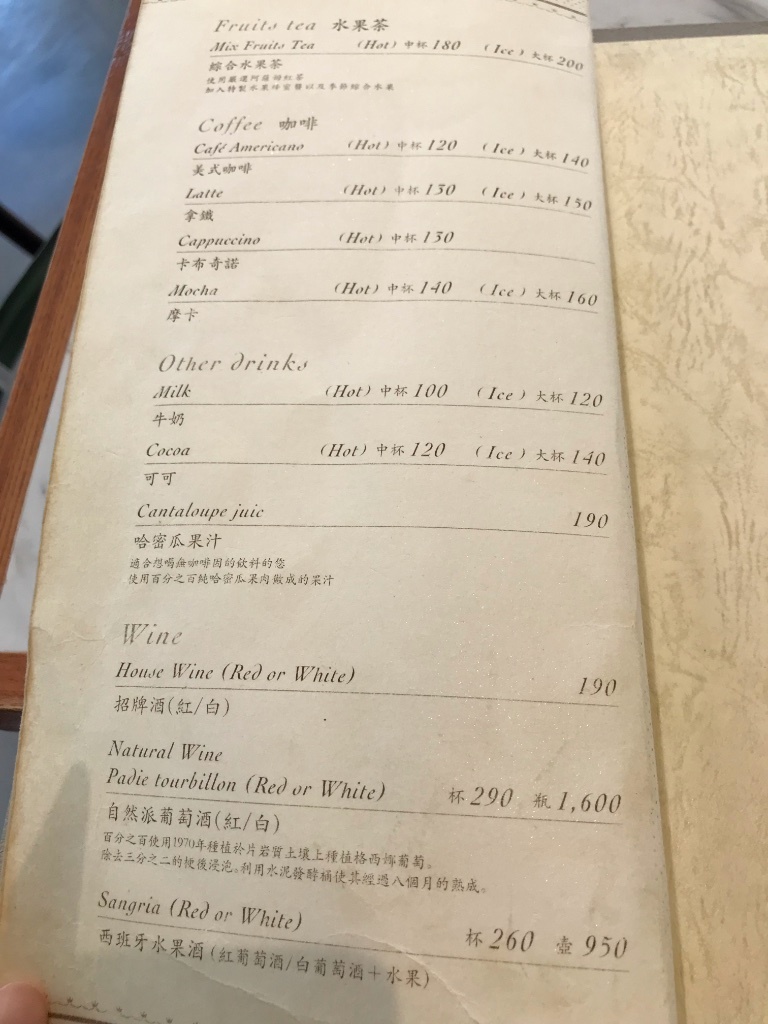 Fruits tea 水果茶
Mix Fruits Tea (Hot) 中杯 180 (Ice) 大杯 200
綜合水果茶
使用嚴選阿薩姆紅茶
加入特製水果蜂蜜醬以及季節綜合水果
Coffee 咖啡
Café Americano (Hot) 中杯 120 (Ice) 大杯 140
美式咖啡
Latte (Hot) 中杯 130 (Ice) 大杯 150
拿鐵
Cappuccino (Hot) 中杯 130
卡布奇諾
Mocha (Hot) 中杯 140 (Ice) 大杯 160
摩卡
Other drinks
Milk (Hot) 中杯 100 (Ice) 大杯 120
牛奶
Cocoa (Hot) 中杯 120 (Ice) 大杯 140
可可
Cantaloupe juic 190
哈密瓜果汁
適合想喝無咖啡因的飲料的您
使用百分之百純哈密瓜果肉做成的果汁
Wine
House Wine (Red or White) 190
招牌酒(紅/白)
Natural Wine
Padie tourbillon (Red or White) 杯 290 瓶 1,600
自然派葡萄酒(紅/白)
百分之百使用1970年種植於片岩質土壤上種植格西娜葡萄。
除去三分之二的梗後浸泡。利用水泥發酵桶使其經過八個月的熟成。
Sangria (Red or White) 杯 260 壺 950
西班牙水果酒 (紅葡萄酒/白葡萄酒+水果)